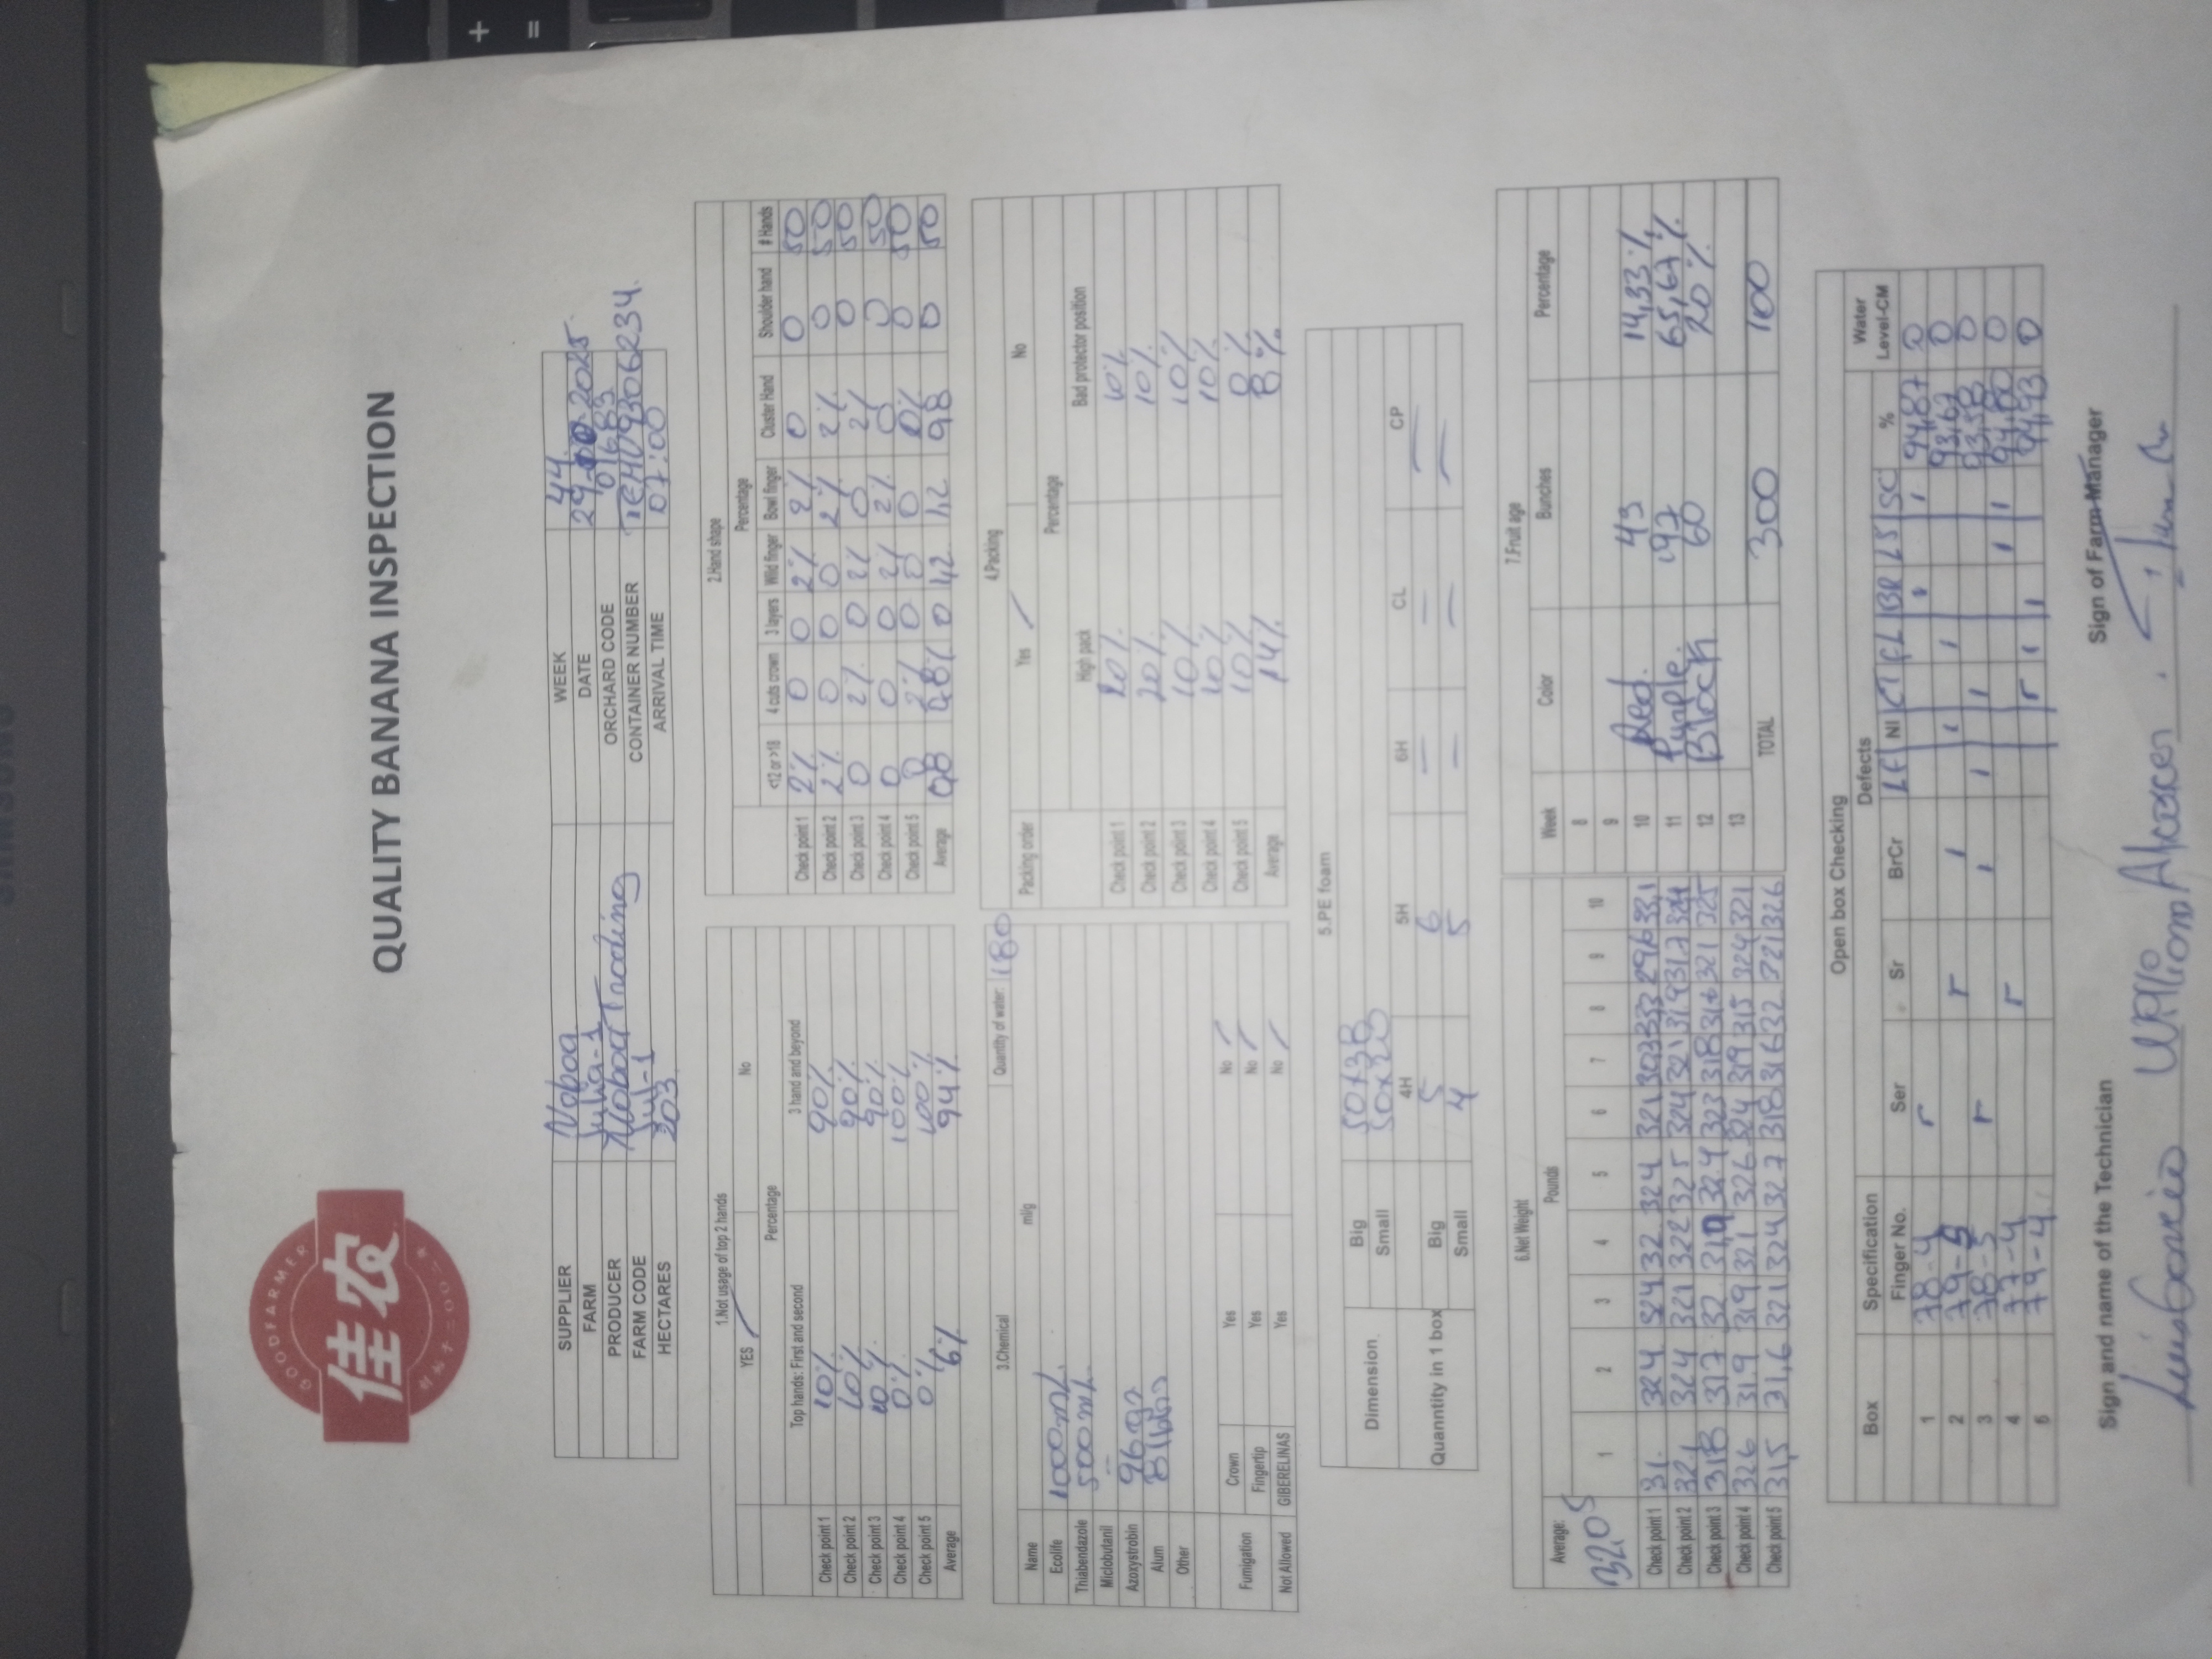 SAMSUNG
GOODFARMER
佳农
创始于二〇〇二年
QUALITY BANANA INSPECTION
SUPPLIER Noboa WEEK 44
FARM Julia-1 DATE 29-10-2025
PRODUCER Noboa Trading ORCHARD CODE 01683
FARM CODE Jul-1 CONTAINER NUMBER TEMU9306234
HECTARES 203 ARRIVAL TIME 07:00
1.Not usage of top 2 hands
YES No
Percentage
Top hands: First and second 3 hand and beyond
Check point 1 10% 90%
Check point 2 10% 90%
Check point 3 10% 90%
Check point 4 0% 100%
Check point 5 0% 100%
Average 6% 94%
2.Hand shape
Percentage
<12 or >18 4 cuts crown 3 layers Wild finger Bowl finger Cluster Hand Shoulder hand # Hands
Check point 1 2% 0 0 2% 2% 0 0 50
Check point 2 2% 0 0 0 2% 2% 0 50
Check point 3 0 2% 0 2% 0 2% 0 50
Check point 4 0 0 0 2% 2% 0 0 50
Check point 5 0 2% 0 0 0 0% 0 50
Average 0,8 0,8% 0 1,2 1,2 0,8 0 50
3.Chemical Quantity of water: 180
Name ml/g
Ecolife 1000mL
Thiabendazole 500mL
Miclobutanil —
Azoxystrobin 96 gr
Alum
Other
Fumigation Crown Yes No
Fingertip Yes No
Not Allowed GIBERELINAS Yes No
4.Packing
Packing order Yes No
Percentage
High pack Bad protector position
Check point 1 20% 10%
Check point 2 20% 10%
Check point 3 10% 10%
Check point 4 10% 10%
Check point 5 10% 0%
Average 14% 8%
5.PE foam
Dimension Big 50x38
Small 50x20
4H 5H 6H CL CP
Quanntity in 1 box Big 5 6 — — —
Small 4 5 — — —
6.Net Weight
Average: 32,05 Pounds
1 2 3 4 5 6 7 8 9 10
Check point 1 31. 324 324 32 324 321 303 333 296 33,1
Check point 2 32,1 324 321 322 325 324 321 319 317 324
Check point 3 318 317 32 31,9 324 323 318 316 321 325
Check point 4 326 319 319 321 326 324 319 315 324 321
Check point 5 31,5 31,6 321 324 327 318 316 32 321 326
7.Fruit age
Week Color Bunches Percentage
8
9
10 Red. 43 14,33%
11 Purple. 197 65,67%
12 Black 60 20%
13
TOTAL 300 100
Open box Checking
Box Specification Defects Water
Finger No. Ser Sr BrCr LF NI CT FL BR LS SC % Level-CM
1 78-4 94,87 0
2 79-5 93,67 0
3 78-5 93,58 0
4 77-4 94,80 0
5 79-4 94,93 0
Sign and name of the Technician Sign of Farm Manager
Luis Garcia William Alcocer